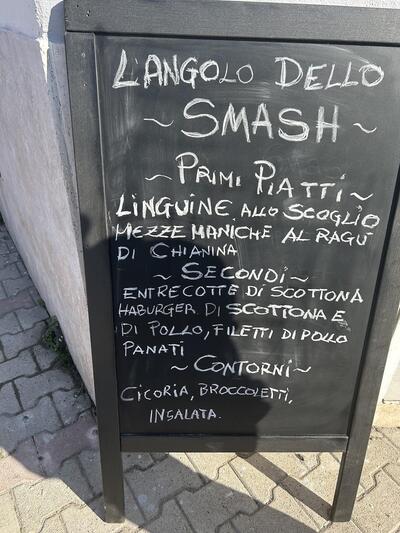 L'ANGOLO DELLO
~ SMASH ~
~ PRIMI PIATTI ~
LINGUINE ALLO SCOGLIO
MEZZE MANICHE AL RAGÙ
DI CHIANINA
~ SECONDI ~
ENTRECOTTE DI SCOTTONA
HABURGER DI SCOTTONA E
DI POLLO, FILETTI DI POLLO
PANATI
~ CONTORNI ~
CICORIA, BROCCOLETTI,
INSALATA.